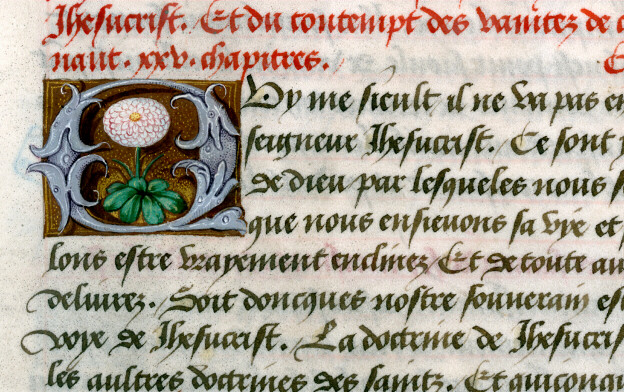 Jhesucrist. Et du contempt des vanitez de c
nant. xxv. chapitres. E
Qoy me sieult il ne va pas en
seigneur Jhesucrist. Ce sont p
de dieu par lesqueles nous s
que nous ensievons sa vye et
lons estre vrayement enclinez Et de toute au
delivrez. Soit doncques nostre souverain es
voye de Jhesucrist. La doctrine de Jhesucris
les aultres doctrines des saintz. Et quiconq